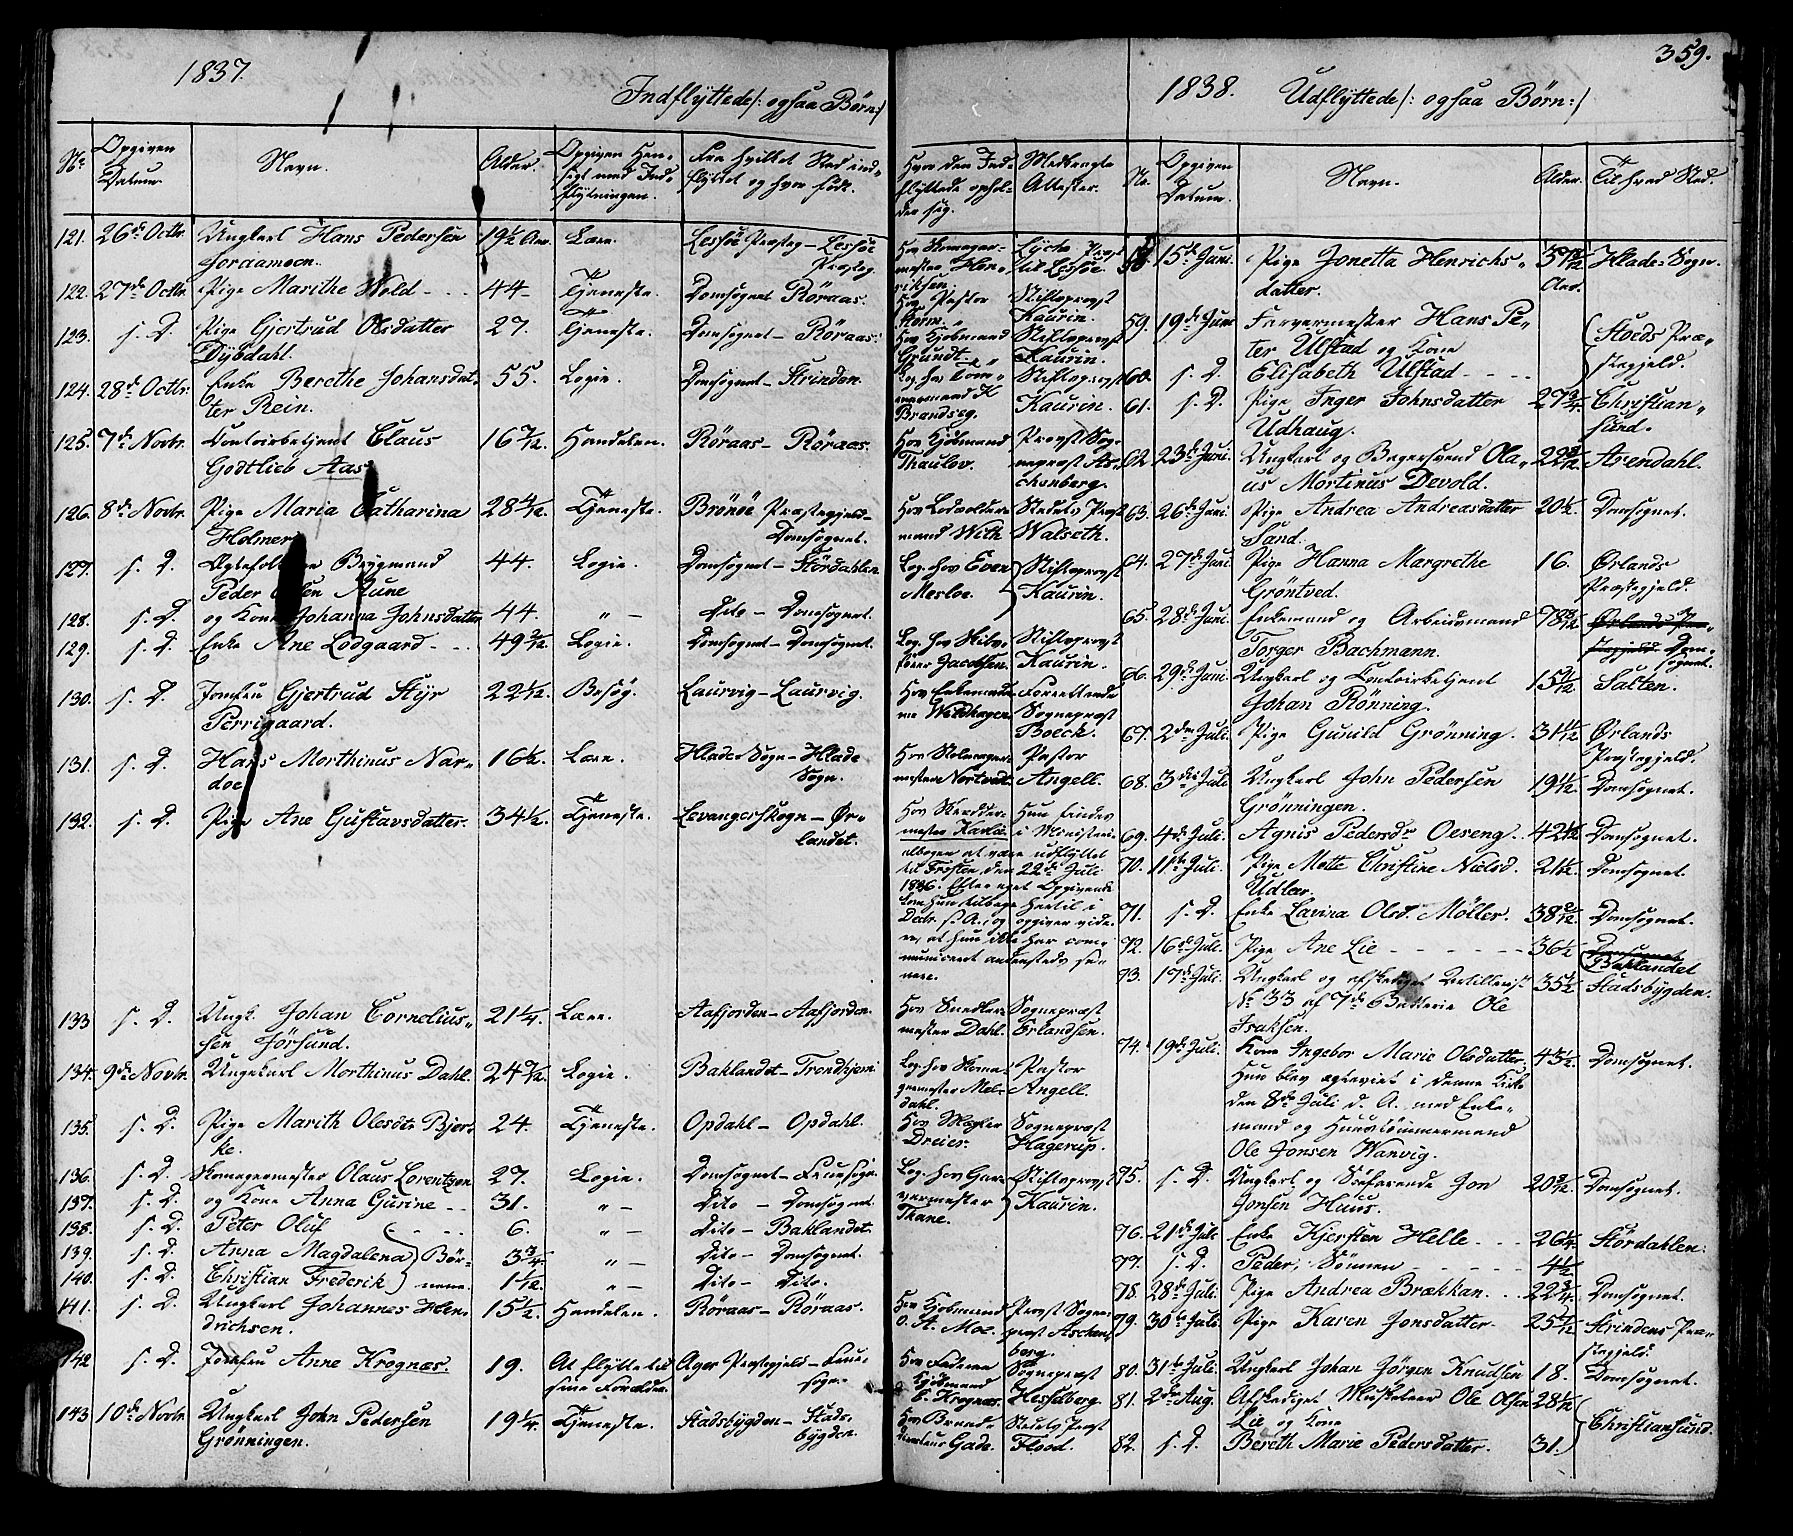 359.
1837.
Indflÿttede /: ogsaa Børn :/
No
Opgiven Datum.
Navn.
Alder.
Opgiven Hensigt med Indflytningen.
Fra hvilket Sted indflyttet og hvor født.
Hvor den Indflyttede opholder sig.
Medbragte Attester.
121. 26de Octbr. Ungkarl Hans Pedersen 19½ Aar. Lære. Lessøe Præsteg.– Lessøe Præsteg.
122. 27de Octbr. Pige Marithe Wold 44 Tjeneste. Domsognet Røraas. Hos Pastor Stiftsprovst Kaurin.
123. s. D. Pige Gjertrud Olsdatter Dÿbdahl. 27. Tjeneste. Domsognet – Røraas. Hos Kjøbmand Grundt. Stiftsprovst Kaurin.
124. 28de Octbr. Enke Berethe Johansdatter Rein. 55. Logie. Domsognet – Strinden. Stiftsprovst Kaurin.
125. 7de Novbr. Contoirbetjent Claus Godtlieb Aas 16 7/12. Handelen. Røraas – Røraas. Hos Kjøbmand Thaulov. Provst Sognepræst Aschenberg.
126. 8de Novbr. Pige Maria Catharina Holmer 28 4/12. Tjeneste. Brønøe Præstegjeld – Domsognet. Hos Lodsoldermand With Stedets Præst Walseth.
127. s. D. Ægtefolkene Brygmand Peder Olsen Aune 44. Logie. Domsognet – Størdahlen. Log. hos Even Mesloe. Stiftsprovst Kaurin.
128. s. D. og Kone Johanna Johnsdatter 44. " – Dito – Domsognet.
129. s. D. Enke Ane Lodgaard 49 2/12. Logie. Domsognet – Domsognet. Jacobsen. Stiftsprovst Kaurin.
130. s. D. Jomfru Gjertrud Styr Perrigaard. 22 1/12. Besøg. Laurvig – Laurvig. Hos Enkemadame Wildhagen Foresettende Sognepræst Boeck.
131. s. D. Hans Morthinus Nardoe 16½. Lære. Hlade Sogn – Hlade Sogn. Pastor Angell.
132. s. D. Pige Ane Gustavsdatter. 34½. Tjeneste. Levanger Skogn – Ørlandet. Hos Skrædermester Hun findes i Ministerialbogen at være udflyttet til Frosten den 22de Juli 1836. Efter eget Opgivende kom hun tilbage hertil i Octbr. s. A., og opgiver videre, at hun ikke har communiceret andensteds senere.
133 s. D. Ungk. Johan Corneliussen Jørsund. 21¼. Lære. Aafjorden – Aafjorden. Hos Snedkermester Dahl. Sognepræst Erlandsen.
134. 9de Novbr. Ungekarl Morthinus Dahl. 24 7/12. Logie. Baklandet – Trondhjem Log. hos Skomagermester Meldahl. Pastor Angell.
135. s. D. Pige Marith Olesdtr Bjerke. 24. Tjeneste. Opdahl – Opdahl. Hos Mægler Dreier. Sognepræst Hagerup.
136. s. D. Skomagermester Olaus Lorentzen 27. Logie. Domsognet – Fruesogn. Log. hos Garvermester Thane. Stiftsprovst Kaurin.
137. s. D. og Kone Anna Gurine 31. " – Dito – Domsognet.
138. s. D. Peter Oluf 6. " – Dito – Baklandet.
139. s. D. Anna Magdalena Børnene 3¾. " – Dito – Domsognet.
140. s. D. Christian Frederik 1 1/12. " – Dito – Dito.
141. s. D. Ungkarl Johannes Hendrichsen. 15½. Handelen. Røraas – Røraas. Hos Kjøbmand O. A. Moe. Provst Sognepræst Aschenberg.
142 s. D. Jomfru Anne Krognæs. 19. At flytte til sine Forældre. Ager Præstegjeld – Fruesogn. Hos Faderen Kjøbmand Krognæs. Sognepræst Hesselberg.
143 10de Novbr. Ungkarl John Pedersen Grønningen. 19¼. Tjeneste. Stadsbygden – Stadsbygden. Gade. Stedets Præst Flood.
1838.
Udflÿttede /: ogsaa Børn :/
No.
Opgiven Datum.
Navn.
Alder.
Til hvad Sted.
58. 15de Juni. Pige Jonetta Henrichsdatter. Aar. Hlade-Sogn.
59. 19de Juni Farvermester Hans Peter Ulstad og Kone Stods Præstegjeld.
60. s. D. Elisabeth Ulstad
61. s. D. Pige Inger Johnsdatter Udhaug. 27¾. Christiansund.
62. 23de Juni. Ungkarl og Bagersvend Olaus Mortinus Devold. Arendahl.
63. 26de Juni. Pige Andrea Andreasdatter Sand. 20½. Domsognet.
64. 27de Juni. Pige Hanna Margrethe Grøntved. 16. Ørlands Præstegjeld.
65. 28de Juni. Enkemand og Arbeidsmand Torger Bachmann. Ørlands Præstegjeld Domsognet.
66. 29de Juni. Ungkarl og Contoirbetjent Johan Rønning. Salten.
67. 2den Juli. Pige Gunild Grønning. 31 11/12 Ørlands Præstegjeld.
68. 3die Juli Ungkarl John Pedersen Grønningen. 19 11/12. Domsognet.
69. 4de Juli. Agnis Pedersdr Oeseng. Domsognet.
70. 11te Juli. Pige Mette Christine Nielsd. Udlær. 21½. Domsognet.
71. s. D. Enke Lavina Olsd. Møller. Domsognet.
72. 16de Juli. Pige Ane Lie 36½ Domsognet Baklandet
73. 17de Juli. Ungkarl og afskediget Artillerist No 33 af 7de Batterie Ole Isaksen. 35½ Stadsbygden.
74. 19de Juli. Kone Ingebor Marie Olsdatter. 45½. Domsognet.
Hun blev ægteviet i denne Kirke den 8de Juli d. A. med Enkemand og Huustømmermand Ole Jonsen Wanvig.
75. s. D. Ungkarl og Søefarende Jon Jonsen Huus. Domsognet.
76. 21de Juli Enke Kjersten Helle 26¼. Størdahlen.
77. s. D. Peder, Sønnen 4½
78. 28de Juli. Pige Andrea Brækkan. 22¾. Domsognet.
79. 30te Juli. Pige Karen Jonsdatter. 25 7/12 Strindens Præstegjeld.
80. 31te Juli. Ungkarl Johan Jørgen Knudsen 18. Domsognet.
81. 2den Aug. Afskediget Musketeer Ole Olsen Lie og Kone Christiansund.
82. s. D. Bereth Marie Pedersdatter. 31.